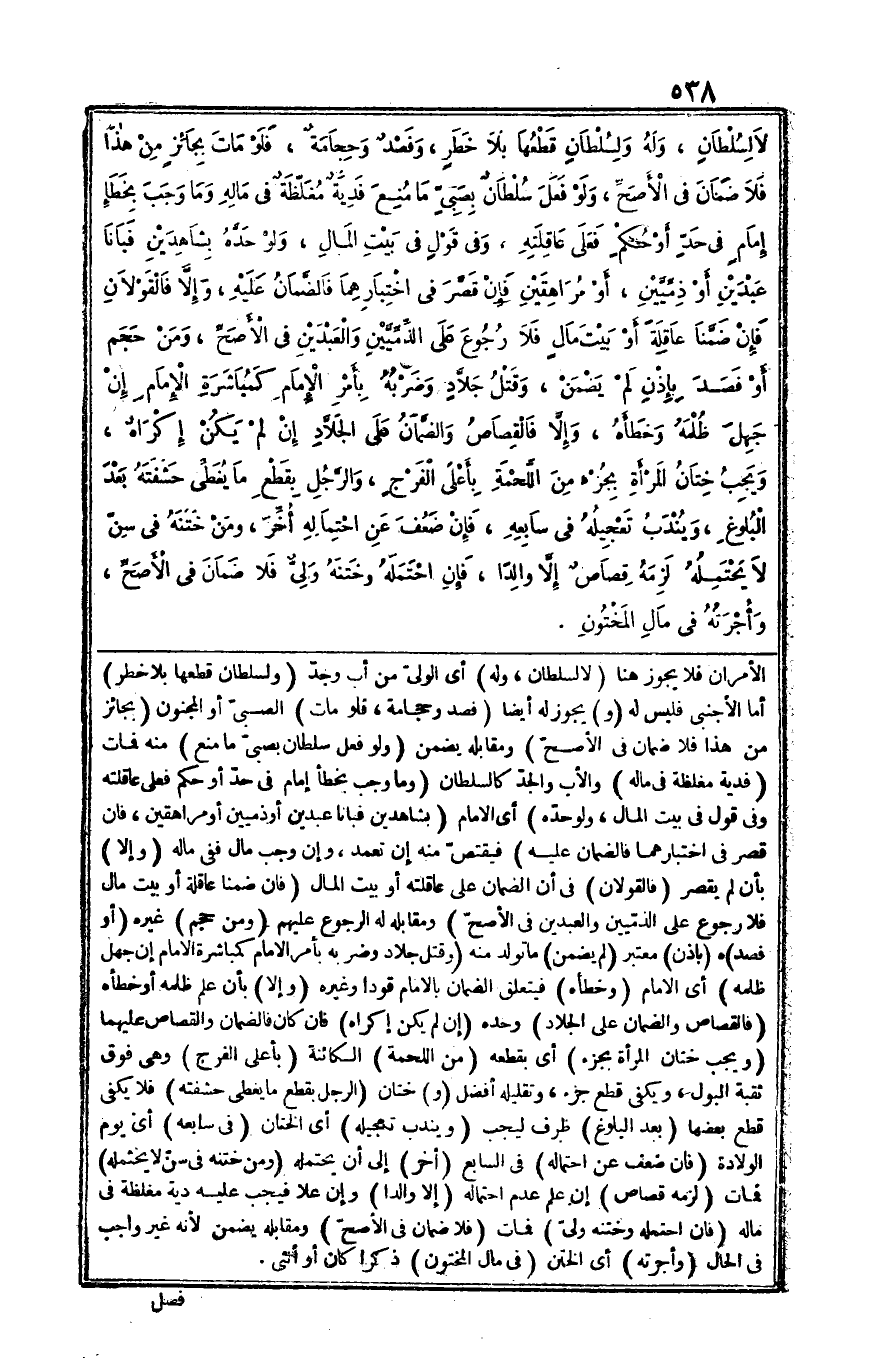 ٥٣٨
لَا لِسُلْطَانٍ ، وَلَهُ وَلِسُلْطَانٍ قَطْعُهَا بِلَا خَطَرٍ ، وَفَصْدٌ وَحِجَامَةٌ ، فَلَوْ مَاتَ بِجَائِزٍ مِنْ هٰذَا
فَلَا ضَمَانَ فِى الْأَصَحِّ ، وَلَوْ فَعَلَ سُلْطَانٌ بِصَبِيٍّ مَا مُنِعَ فَدِيَةٌ مُغَلَّظَةٌ فِى مَالِهِ وَمَا وَجَبَ بِخَطَإِ
إِمَامٍ فِى حَدٍّ أَوْ حُكْمٍ فَعَلَى عَاقِلَتِهِ ، وَفِى قَوْلٍ فِى بَيْتِ الْمَالِ ، وَلَوْ حَدَّهُ بِشَاهِدَيْنِ فَبَانَا
عَبْدَيْنِ أَوْ ذِمِّيَّيْنِ ، أَوْ مُرَاهِقَيْنِ فَإِنْ قَصَّرَ فِى اخْتِبَارِهِمَا فَالضَّمَانُ عَلَيْهِ ، وَإِلَّا فَالْقَوْلَانِ
فَإِنْ ضَمَّنَّا عَاقِلَةً أَوْ بَيْتَ مَالٍ فَلَا رُجُوعَ عَلَى الذِّمِّيَّيْنِ وَالْعَبْدَيْنِ فِى الْأَصَحِّ ، وَمَنْ حَجَمَ
أَوْ فَصَدَ بِإِذْنٍ لَمْ يَضْمَنْ ، وَقَتْلُ جَلَّادٍ وَضَرْبُهُ بِأَمْرِ الْإِمَامِ كَمُبَاشَرَةِ الْإِمَامِ إِنْ
جَهِلَ ظُلْمَهُ وَخَطَأَهُ ، وَإِلَّا فَالْقِصَاصُ وَالضَّمَانُ عَلَى الْجَلَّادِ إِنْ لَمْ يَكُنْ إِكْرَاهٌ ،
وَيَجِبُ خِتَانُ الْمَرْأَةِ بِجُزْءٍ مِنَ اللَّحْمَةِ بِأَعْلَى الْفَرْجِ ، وَالرَّجُلِ بِقَطْعِ مَا يُغَطِّى حَشَفَتَهُ بَعْدَ
الْبُلُوغِ ، وَيُنْدَبُ تَعْجِيلُهُ فِى سَابِعِهِ ، فَإِنْ ضَعُفَ عَنِ احْتِمَالِهِ أُخِّرَ ، وَمَنْ خَتَنَهُ فِى سِنٍّ
لَا يَحْتَمِلُهُ لَزِمَهُ قِصَاصٌ إِلَّا وَالِدًا ، فَإِنِ احْتَمَلَهُ وخَتَنَهُ وَلِيٌّ فَلَا ضَمَانَ فِى الْأَصَحِّ ،
وَأُجْرَتُهُ فِى مَالِ الْمَخْتُونِ .
الأمران فلا يجوز هنا ( لا لسلطان ، وله ) أى الولىّ من أب وجدّ ( ولسلطان قطعها بلا خطر )
أما الأجنبى فليس له ( و ) يجوز له أيضا ( فصد وحجامة ، فلو مات ) الصبىّ أو المجنون ( بجائز
من هذا فلا ضمان فى الأصحّ ) ومقابله يضمن ( ولو فعل سلطان بصبىّ ما منع ) منه فمات
( فدية مغلظة فى ماله ) والأب والجدّ كالسلطان ( وما وجب بخطأ إمام فى حدّ أو حكم فعلى عاقلته
وفى قول فى بيت المال ، ولو حدّه ) أى الامام ( بشاهدين فبانا عبدين أو ذميين أو مراهقين ، فان
قصر فى اختبارهما فالضمان عليه ) فيقتصّ منه إن تعمد ، وإن وجب مال ففى ماله ( وإلا )
بأن لم يقصر ( فالقولان ) فى أن الضمان على عاقلته أو بيت المال ( فان ضمنا عاقلة أو بيت مال
فلا رجوع على الذمّيين والعبدين فى الأصحّ ) ومقابله له الرجوع عليهم ( ومن حجم ) غيره ( أو
فصد)ه (باذن) معتبر (لم يضمن) ما تولد منه (وقتل جلاد وضربه بأمر الامام كمباشرة الامام إن جهل
ظلمه ) أى الامام ( وخطأه ) فيتعلق الضمان بالامام قودا وغيره ( وإلا ) بأن علم ظلمه أو خطأه
( فالقصاص والضمان على الجلاد ) وحده ( إن لم يكن إكراه ) فان كان فالضمان والقصاص عليهما
( ويجب ختان المرأة بجزء ) أى بقطعه ( من اللحمة ) الكائنة ( بأعلى الفرج ) وهى فوق
ثقبة البول ، ويكفى قطع جزء ، وتقليله أفضل ( و ) ختان ( الرجل بقطع ما يغطى حشفته ) فلا يكفى
قطع بعضها ( بعد البلوغ ) ظرف ليجب ( ويندب تعجيله ) أى الختان ( فى سابعه ) أى يوم
الولادة ( فان ضعف عن احتماله ) فى السابع ( أخر ) إلى أن يحتمله ( ومن ختنه فى سنّ لا يحتمله )
فمات ( لزمه قصاص ) إن علم عدم احتماله ( إلا والدا ) وإن علا فيجب عليه دية مغلظة فى
ماله ( فان احتمله وختنه ولىّ ) فمات ( فلا ضمان فى الأصحّ ) ومقابله يضمن لأنه غير واجب
فى الحال ( وأجرته ) أى الختن ( فى مال المختون ) ذكرا كان أو أنثى .
فصل